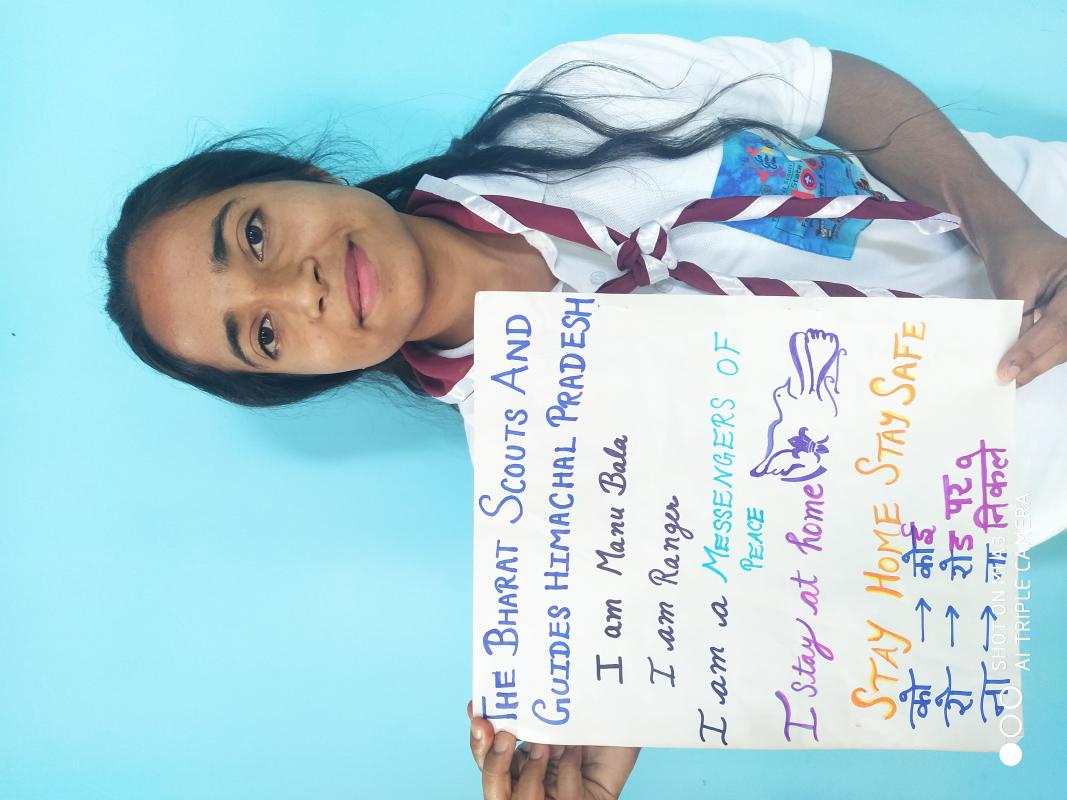 THE BHARAT SCOUTS AND
GUIDES HIMACHAL PRADESH
I am Manu Bala
I am Ranger
I am a MESSENGERS OF
PEACE
I stay at home
STAY HOME STAY SAFE
को → कोई
रो → रोड पर
ना → ना निकले
SHOT ON MI A3
AI TRIPLE CAMERA